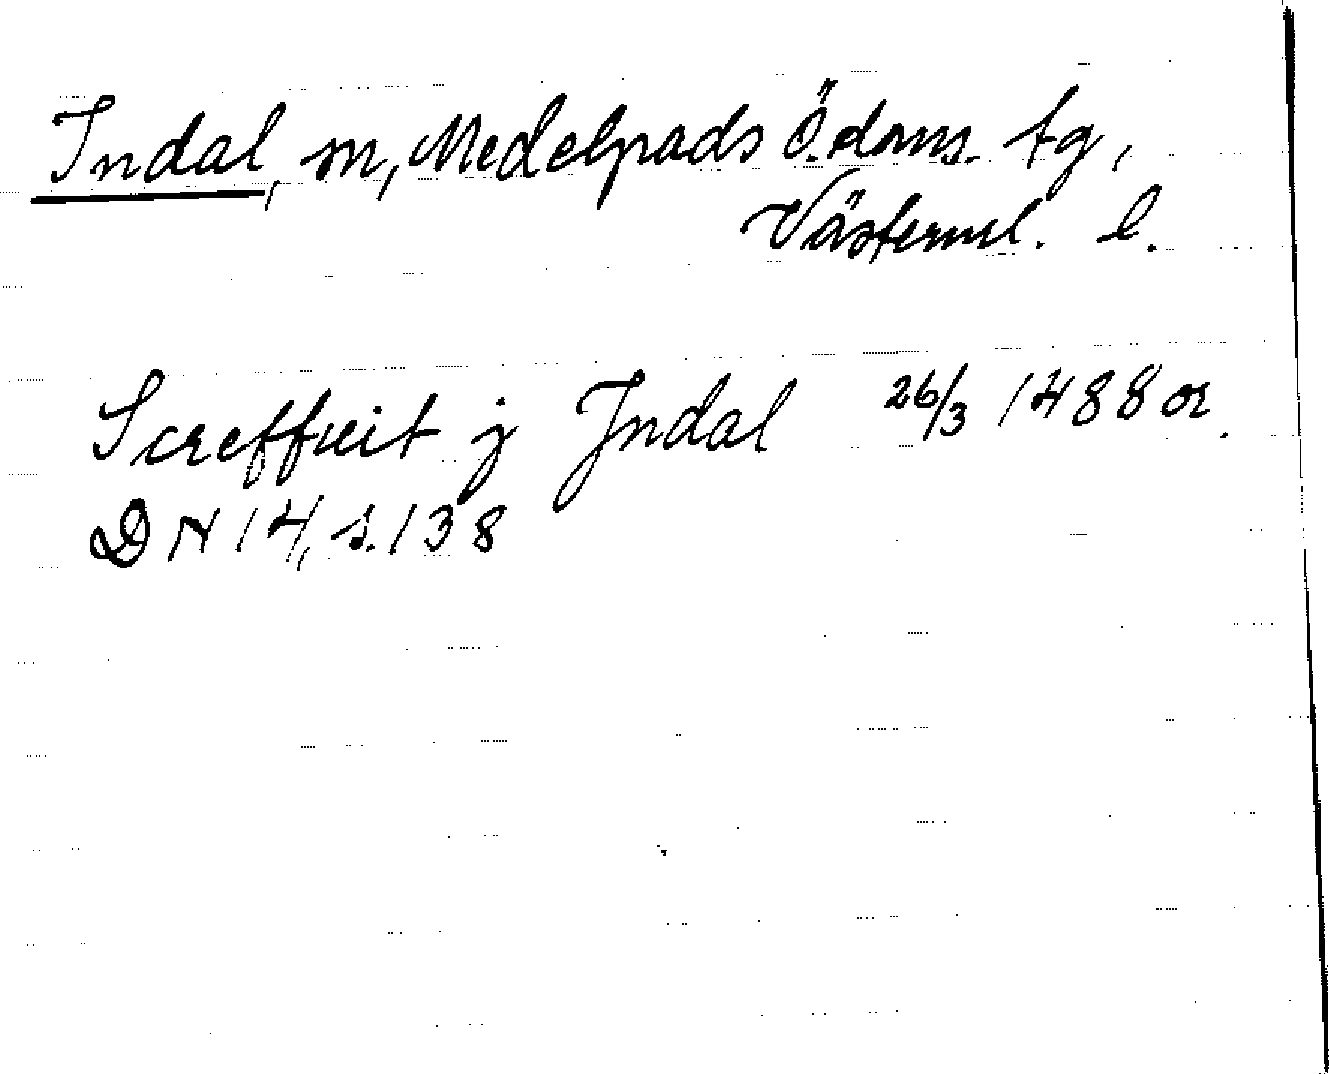 Indal, sn, Medelpads ö. doms. tg,
Västernrl. l.
Screffueit j Jndal 26/3 1488 or.
DN 14, s. 138